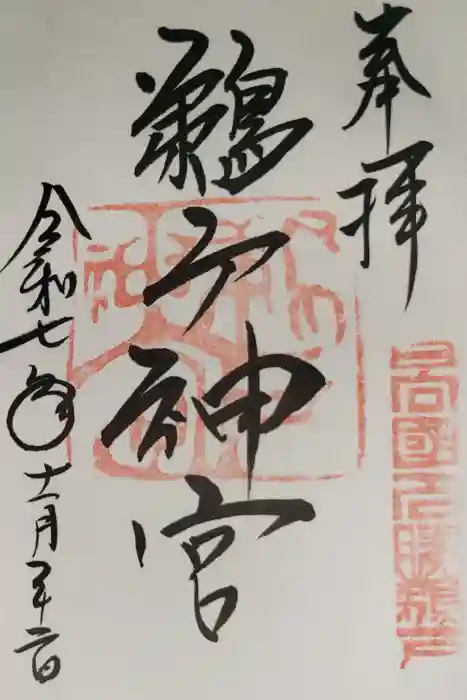 奉拝
日向國正勝鵜戸
鵜戸神宮
令和七年十一月二十二日